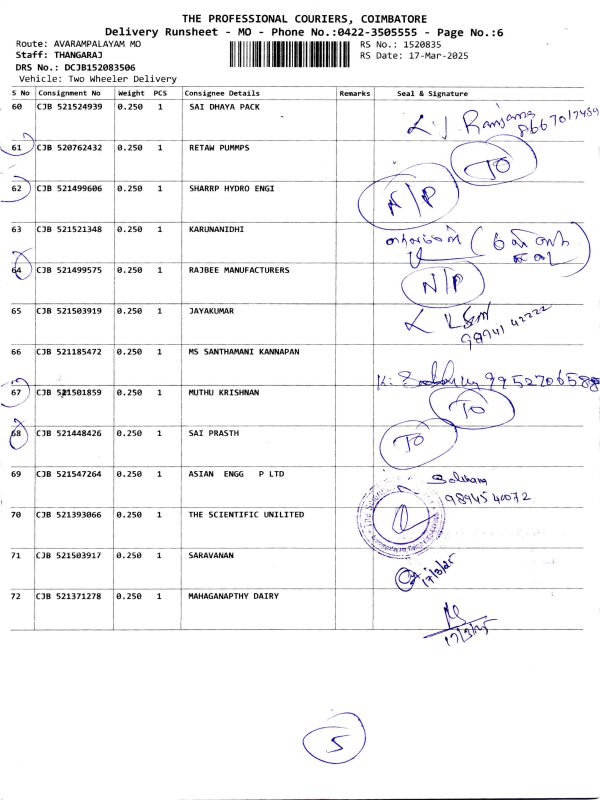 THE PROFESSIONAL COURIERS, COIMBATORE
Delivery Runsheet - MO - Phone No.:0422-3505555 - Page No.:6
Route: AVARAMPALAYAM MO RS No.: 1520835
Staff: THANGARAJ RS Date: 17-Mar-2025
DRS No.: DCJB152083506
Vehicle: Two Wheeler Delivery
S No Consignment No Weight PCS Consignee Details Remarks Seal & Signature
60 CJB 521524939 0.250 1 SAI DHAYA PACK
61 CJB 520762432 0.250 1 RETAW PUMMPS TO
62 CJB 521499606 0.250 1 SHARRP HYDRO ENGI N/P
63 CJB 521521348 0.250 1 KARUNANIDHI
64 CJB 521499575 0.250 1 RAJBEE MANUFACTURERS N/P
65 CJB 521503919 0.250 1 JAYAKUMAR 98941 42222
66 CJB 521185472 0.250 1 MS SANTHAMANI KANNAPAN 9952706588
67 CJB 521501859 0.250 1 MUTHU KRISHNAN TO
68 CJB 521448426 0.250 1 SAI PRASTH TO
69 CJB 521547264 0.250 1 ASIAN ENGG P LTD 98945 40072
70 CJB 521393066 0.250 1 THE SCIENTIFIC UNILITED
71 CJB 521503917 0.250 1 SARAVANAN 17/3/25
72 CJB 521371278 0.250 1 MAHAGANAPTHY DAIRY 17/3/25
5